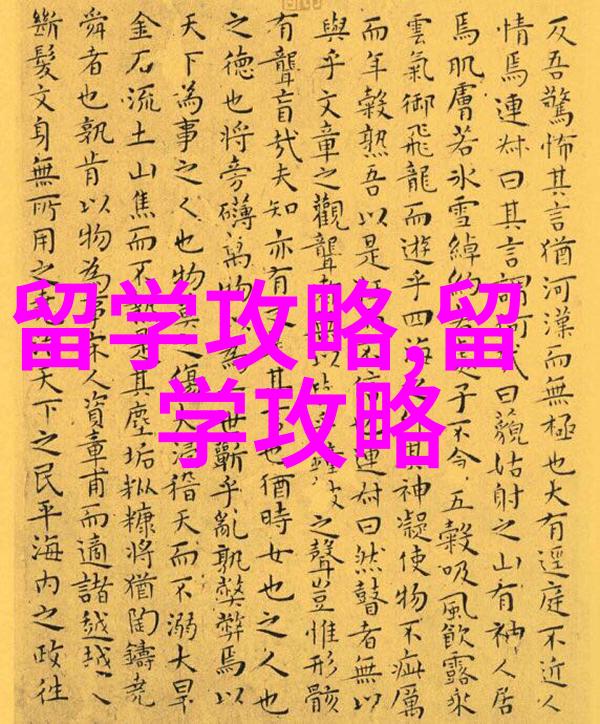 留学攻略,留
学攻略
反吾驚怖其言猶河漢而無極也大有逕庭不近人
情焉連叔曰其言謂何 曰藐姑射之山有神人居
焉肌膚若冰雪綽約 子不 五穀吸風飲露乘
雲氣御飛龍而遊乎四海 其神凝使物不疵厲
而年穀熟吾以是 連叔曰然瞽者無以
與乎文章之觀聾 無以 之聲豈惟形骸
有聾盲哉夫知亦有 其 也猶時女也之人也
之德也將旁礴萬物 為 世蘄乎亂孰弊弊焉以
天下為事之人也物莫之傷大浸稽天而不溺大旱
金石流土山焦而不 是其塵垢粃糠將猶陶鑄堯
舜者也孰肯以物為事宋人資章甫而適諸越越人
斷髮文身無所用之 天下之民平海内之政往